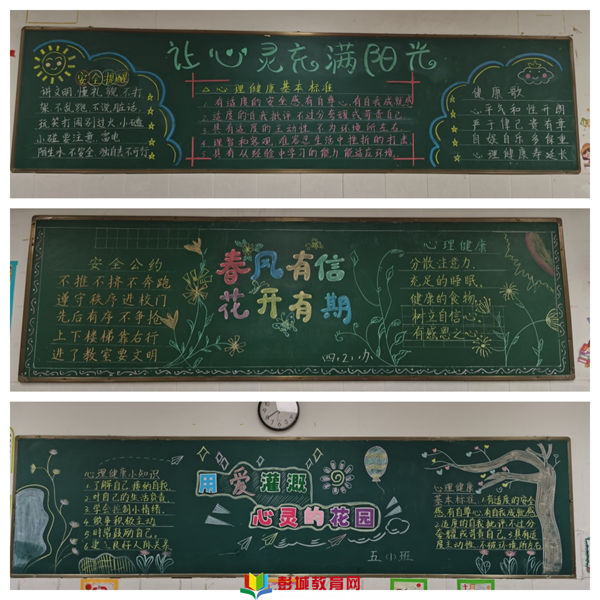 让心灵充满阳光
安全提醒
讲文明,懂礼貌,不打
架,不乱跑,不说脏话,
小碰要注意,雷电
陌生水,不安全,独自去不可行
心理健康基本标准
1.有适度的安全感,有自尊心,有自我成就感
2.适度的自我批评,不过分夸耀我苛责自己
3.具有适度的主动性,不为环境所左右
4.理智和客观,
5.具有从经验中学习的能力,能适应环境
健康歌
心平气和性开朗
严于律己贵有章
自娱自乐多保重
心理健康寿延长
安全公约
不推不挤不奔跑
遵守秩序进校门
先后有序不争抢
上下楼梯靠右行
进了教室要文明
春风有信
花开有期
四.2.办
心理健康
分散注意力,
充足的睡眠,
健康的食物,
树立自信心,
有感恩之心
心理健康小知识
1.了解自己,接纳自我,
2.对自己的生活负责
3.学会控制小情绪,
4.做事积极主动
5.时常鼓励自己,
6.建立良好人际关系
用爱灌溉
心灵的花园
五.小班
心理健康
基本标准:1.有适度的安全
感,有自尊心,有自我成就
2.适度的自我批评不过分
夸耀我苛责自己3.具有适
度主动性,不被环境所左右
彭城教育网